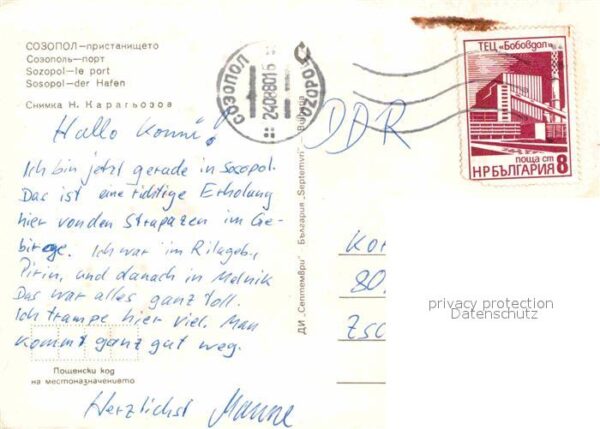 СОЗОПОЛ—пристанището
Созополь—порт
Sozopol—le port
Sosopol—der Hafen
Снимка Н. Карагьозов
Hallo Konni!
Ich bin jetzt gerade in Sosopol.
Das ist eine richtige Erholung
hier von den Strapazen im Ge-
birge. Ich war im Rilageb.,
Pirin, und danach in Melnik
Das war alles ganz toll.
Ich trampe hier viel. Man
kommt ganz gut weg.
Пощенски код
на местоназначението
Herzlichst Manne
ДИ „Септември" България „Septemvri" Bulgarie
СОЗОПОЛ
24088016
SOZOPOL
DDR
ТЕЦ „Бобовдол"
поща ст
НРБЪЛГАРИЯ 8
Kor
80.
Zsc
privacy protection
Datenschutz